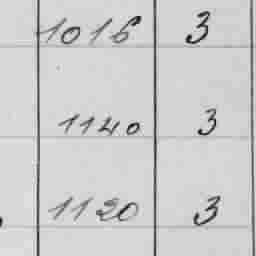 1016 3
1140 3
1120 3